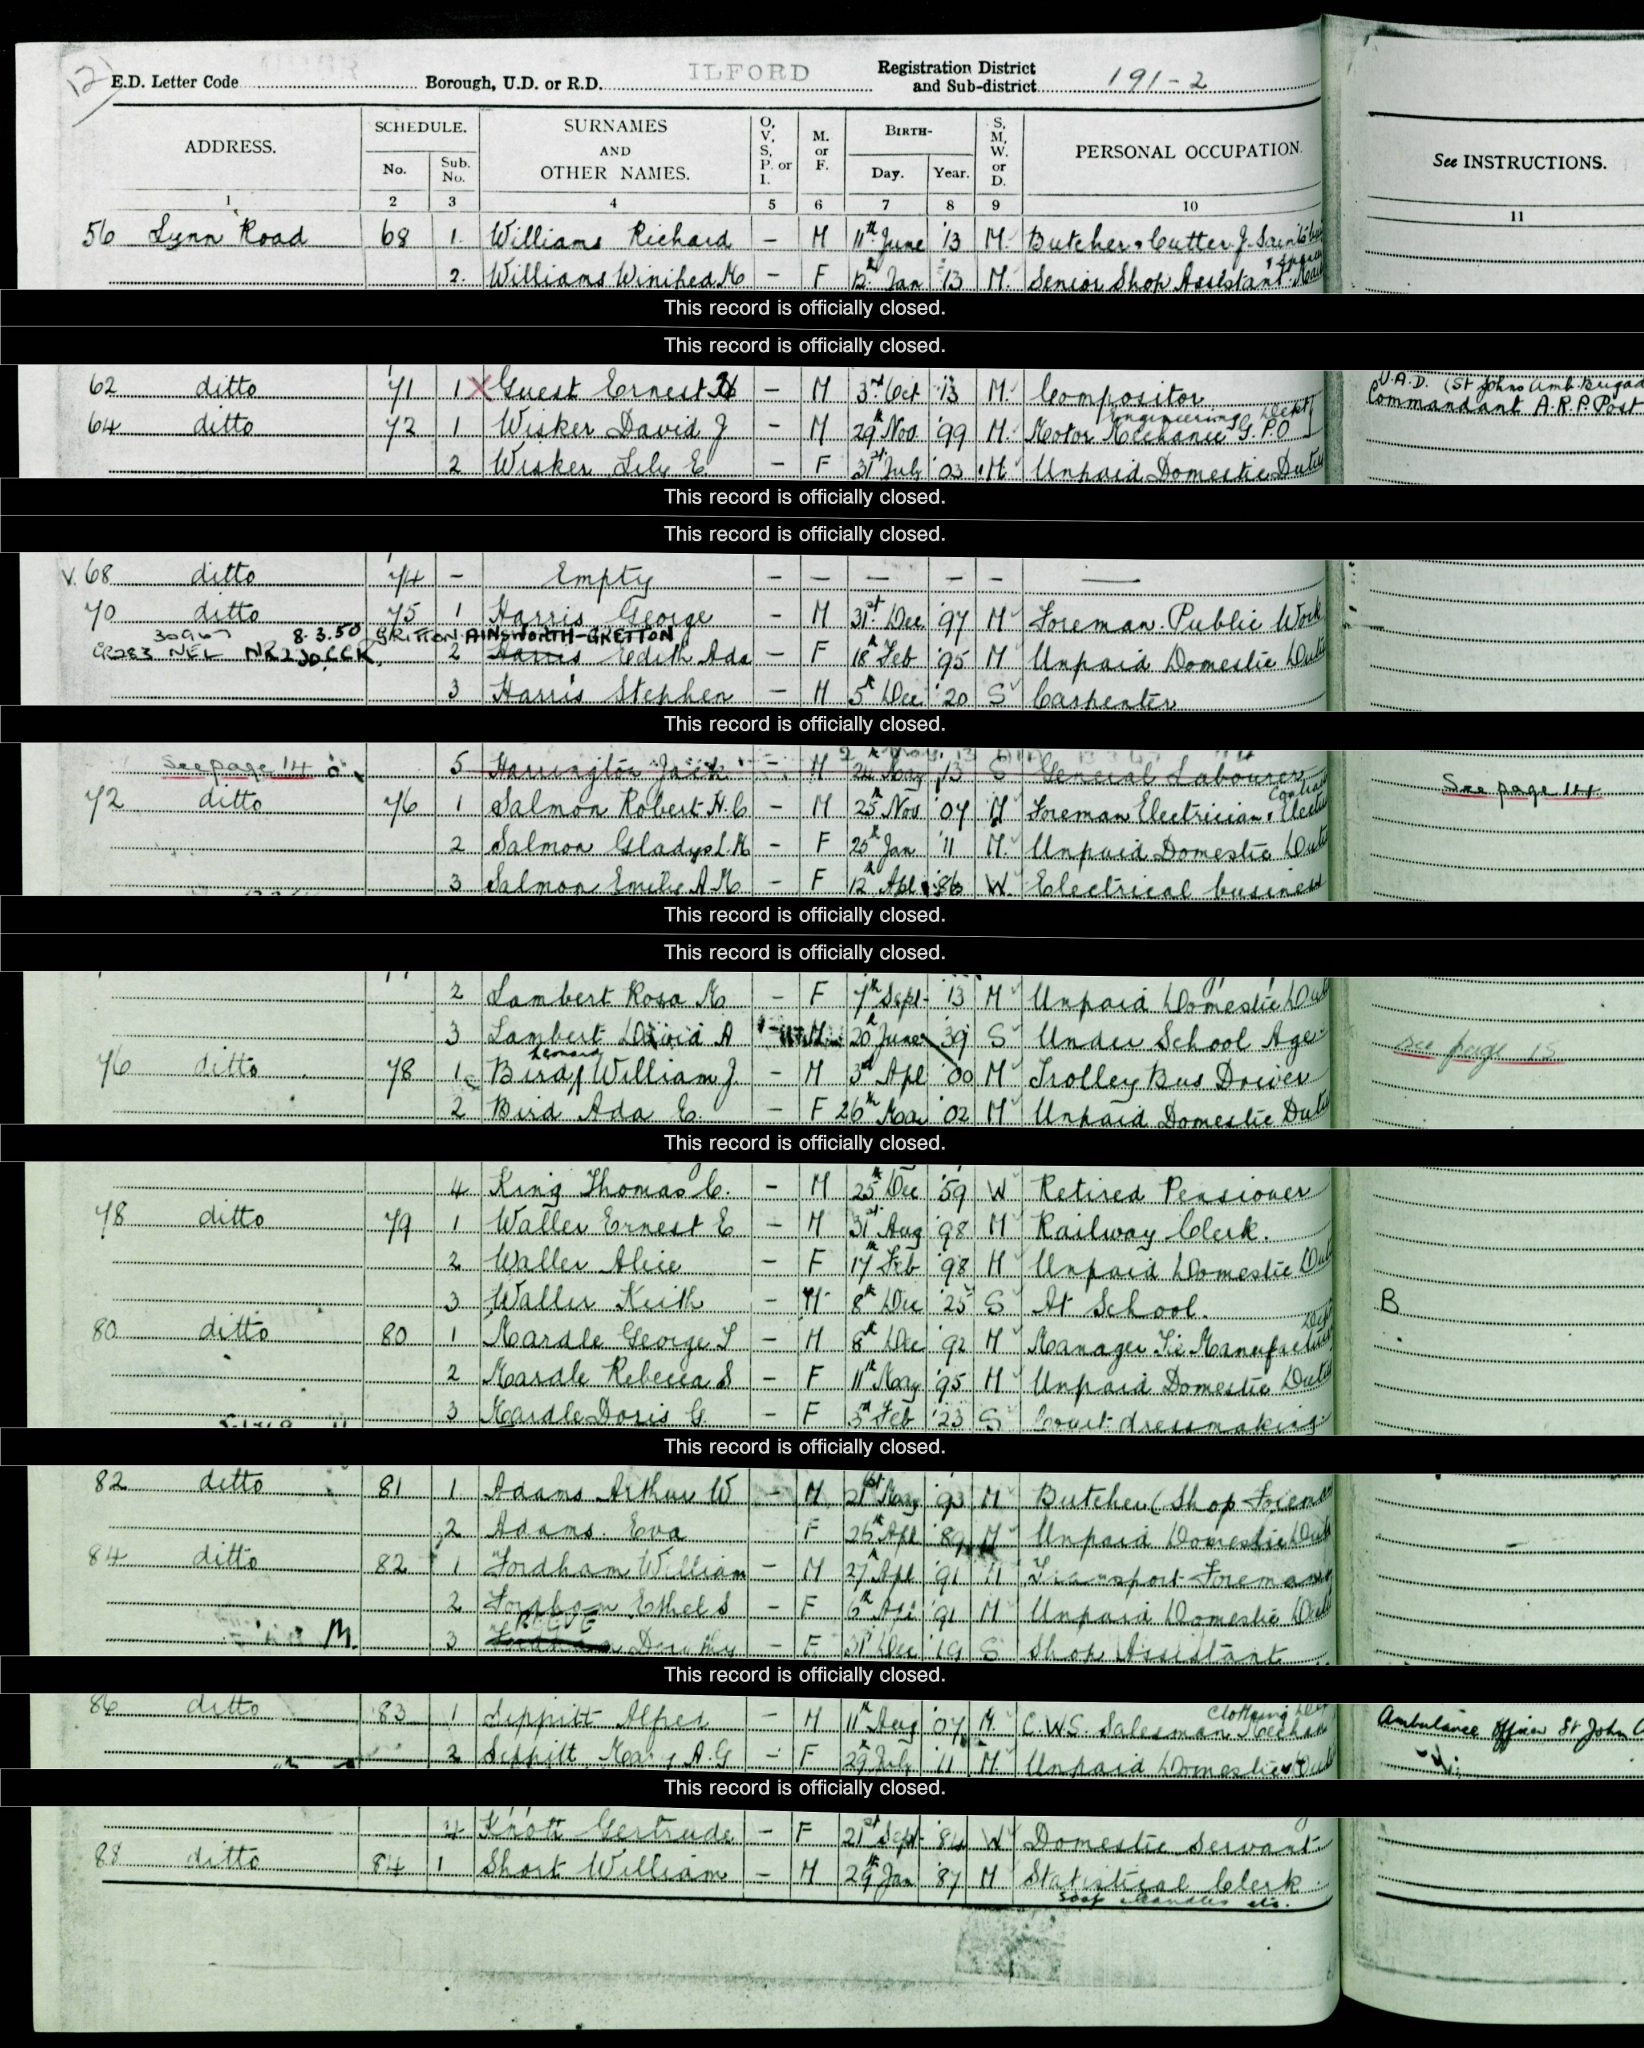 12
E.D. Letter Code Borough, U.D. or R.D. ILFORD Registration District and Sub-district 191-2
ADDRESS. SCHEDULE. No. Sub. No. SURNAMES AND OTHER NAMES. O, V, S, P. or I. M. or F. BIRTH- Day. Year. S, M, W. or D. PERSONAL OCCUPATION. See INSTRUCTIONS.
1 2 3 4 5 6 7 8 9 10 11
56 Lynn Road 68 1. Williams Richard – M 11th June '13 M. Butcher Cutter J.
2. Williams Winifred M – F 12. Jan '13 M. Senior Shop Assistant
This record is officially closed.
This record is officially closed.
62 ditto 71 1 X Guest Ernest H – M 3rd Oct '13 M. Compositor V.A.D. (St Johns Amb. Brigad
Commandant A.R.P. Post
Engineering Dept
64 ditto 72 1 Wisker David J – M 29th Nov '99 M. Motor Mechanic G.P.O
2 Wisker Lily E. – F 31st July '03 M. Unpaid Domestic Duties
This record is officially closed.
This record is officially closed.
V. 68 ditto 74 – Empty – – – – – —
70 ditto 75 1 Harris George – M 31st Dec '97 M Foreman Public Work
8.3.50 GRITTON AINSWORTH-GRETTON
NEL 2 Harris Edith Ada – F 18th Feb '95 M Unpaid Domestic Duti
3 Harris Stephen – M 5th Dec '20 S Carpenter
This record is officially closed.
See page 14 5 Harrington Jack – M 24 May '13 S General Labourer
See page 14
72 ditto 76 1 Salmon Robert H. C – M 25th Nov '07 M Foreman Electrician
2 Salmon Gladys L. M – F 20th Jan '11 M. Unpaid Domestic Duti
3 Salmon Emilie A. M – F 12th Apl '86 W. Electrical business
This record is officially closed.
This record is officially closed.
2 Lambert Rosa M – F 7th Sept '13 M Unpaid Domestic Dut
3 Lambert David A – M 20th June '39 S Under School Age
see page 15
Leonard
76 ditto 78 1 Bird William J. – M 3rd Apl '00 M Trolley Bus Driver
2 Bird Ada E. – F 26th Mar '02 M Unpaid Domestic Duti
This record is officially closed.
4 King Thomas C. – M 25th Dec '59 W Retired Pensioner
78 ditto 79 1 Waller Ernest E – M 31st Aug '98 M Railway Clerk.
2 Waller Alice – F 17th Feb '98 M Unpaid Domestic Duti
3 Waller Keith – M 8th Dec '25 S At School. B
80 ditto 80 1 Mardle George T – M 8th Dec '92 M Manager Tie Manufacturing
2 Mardle Rebecca S – F 11th May '95 M Unpaid Domestic Duties
3 Mardle Doris G. – F 3rd Feb '23 S Court dressmaking
This record is officially closed.
82 ditto 81 1. Adams Arthur W – M 21st May '93 M Butcher (Shop Foreman
2 Adams. Eva F 26th Apl '89 M Unpaid Domestic Duti
84 ditto 82 1 Fordham William – M 27th Apl '91 M Transport Foreman
2 Fordham Ethel S – F 6th Apl '91 M Unpaid Domestic Duti
M. 3 Dorothy – F 31st Dec '19 S Shop Assistant
This record is officially closed.
Clothing
86 ditto 83 1 Sippitt Alfred – M 11th Aug '07 M. C.W.S. Salesman Ambulance Officer St John
2 Sippitt Mary A. G – F 29th July '11 M. Unpaid Domestic Duti
This record is officially closed.
4 Knott Gertrude – F 21st Sept '84 W Domestic Servant
88 ditto 84 1 Short William – M 29th Jan '87 M Statistical Clerk
Soap Candles etc.